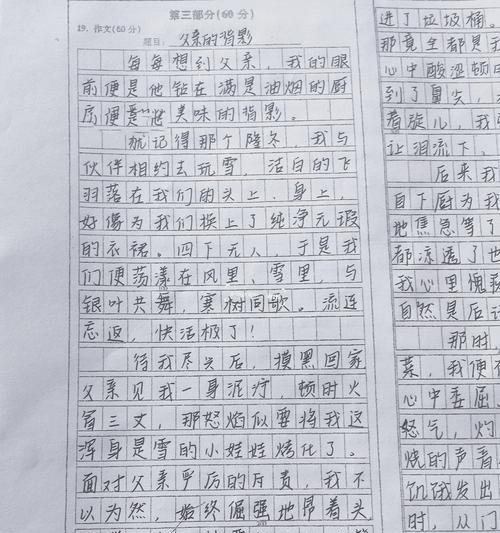 第三部分(60分)
19. 作文(60分)
题目: 父亲的背影
每每想到父亲,我的眼
前便是他钻在满是油烟的厨
房便
美味的背影。
犹记得那个隆冬,我与
伙伴相约去玩雪,洁白的飞
羽落在我们的头上、身上,
好像为我们换上了纯净无瑕
的衣裙。四下无人,于是我
们便荡漾在风里、雪里,与
银叶共舞,寒树同歌。流连
忘返,快活极了!
待我尽兴后,摸黑回家
父亲见我一身泥泞,顿时火
冒三丈,那怒焰似要将我这
浑身是雪的小娃娃烤化了。
面对父亲严厉的斥责,我不
以为然,始终倔强地昂着头
进了垃圾桶。
那竟全都是我
心中酸涩顿时
到了
着旋儿,我
让泪流下、
后来我
自下厨为我
地焦急等了
都凉透了也
我心里愧
自然是后
那时,
菜,我便
心中委屈
怒气,灼
烧的声着
饥饿发出
时,从门